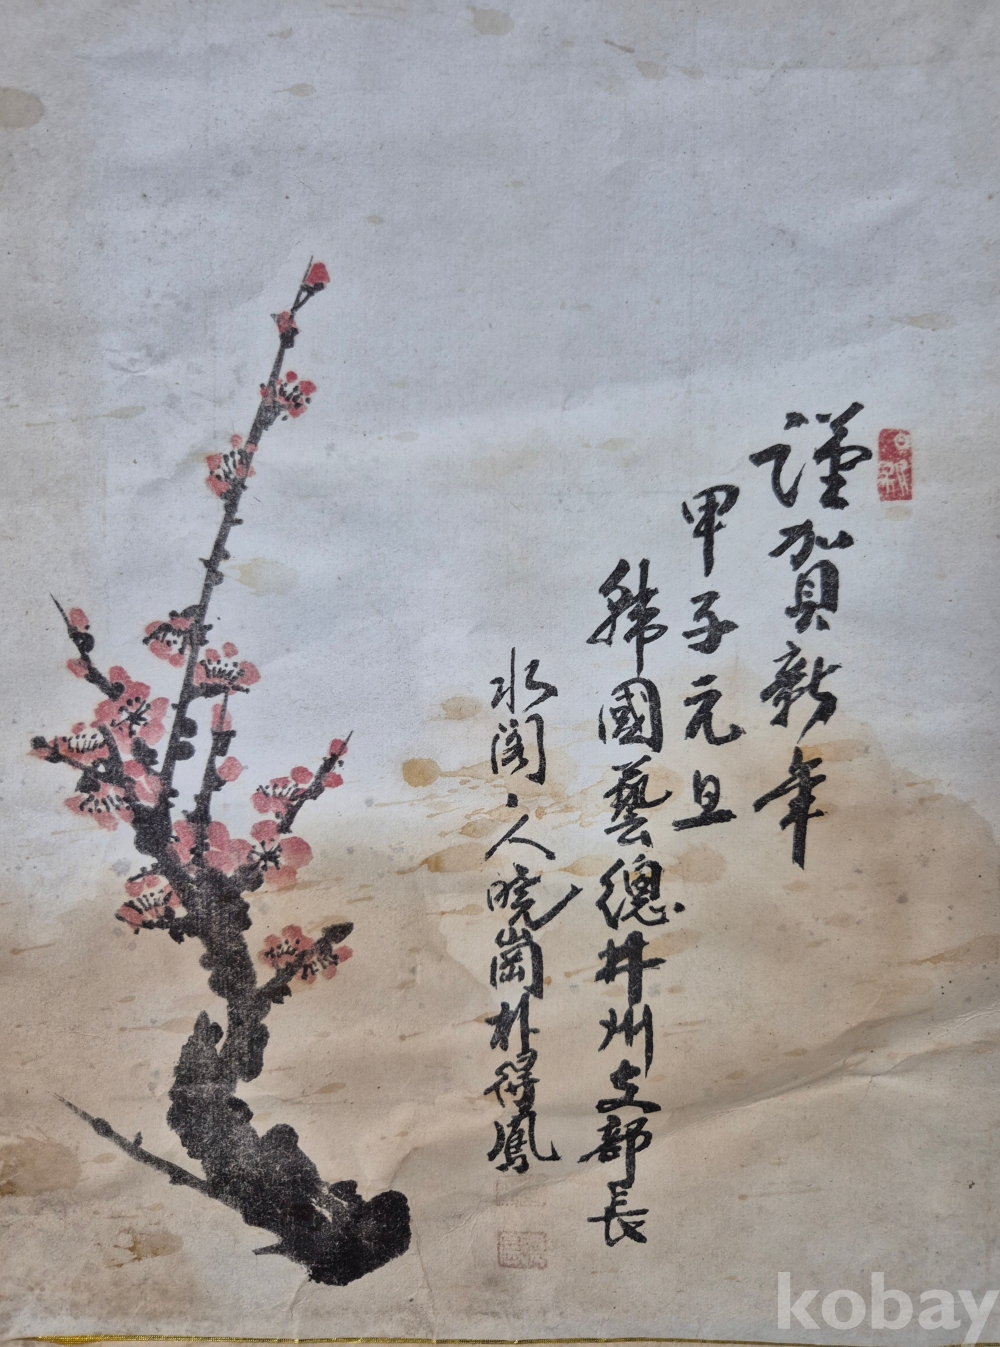 謹賀新年
甲子元旦
韓國藝總井州支部長
水閣人 曉崗 朴得鳳
kobay